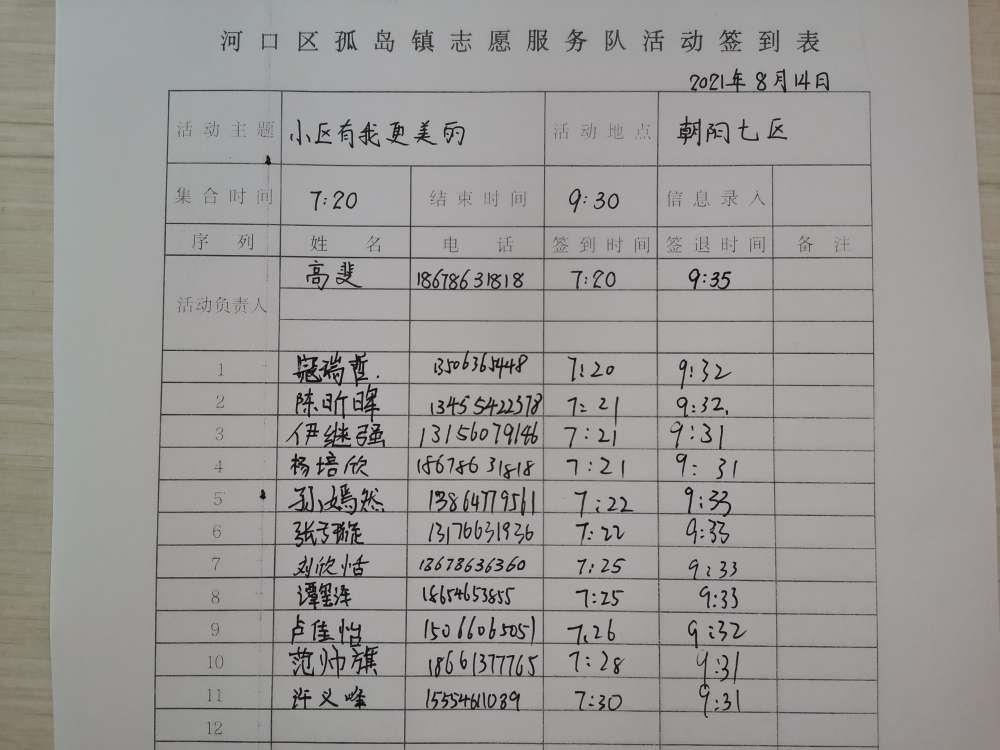 河口区孤岛镇志愿服务队活动签到表
2021年8月14日
活动主题 小区有我更美的 活动地点 朝阳七区
集合时间 7:20 结束时间 9:30 信息录入
序列 姓名 电话 签到时间 签退时间 备注
活动负责人 高斐 18678631818 7:20 9:35
1 寇瑞哲. 13506365448 7:20 9:32
2 陈昕暐 13455422378 7:21 9:32.
3 伊继强 13156079146 7:21 9:31
4 杨培欣 18678631818 7:21 9:31
5 孙嫣然 13864779561 7:22 9:33
6 13176631936 7:22 9:33
7 刘欣恬 18678636360 7:25 9:33
8 18654653855 7:25 9:33
9 卢佳怡 15066065051 7.26 9:32
10 范帅旗 18661377765 7:28 9:31
11 许义峰 15554611039 7:30 9:31
12